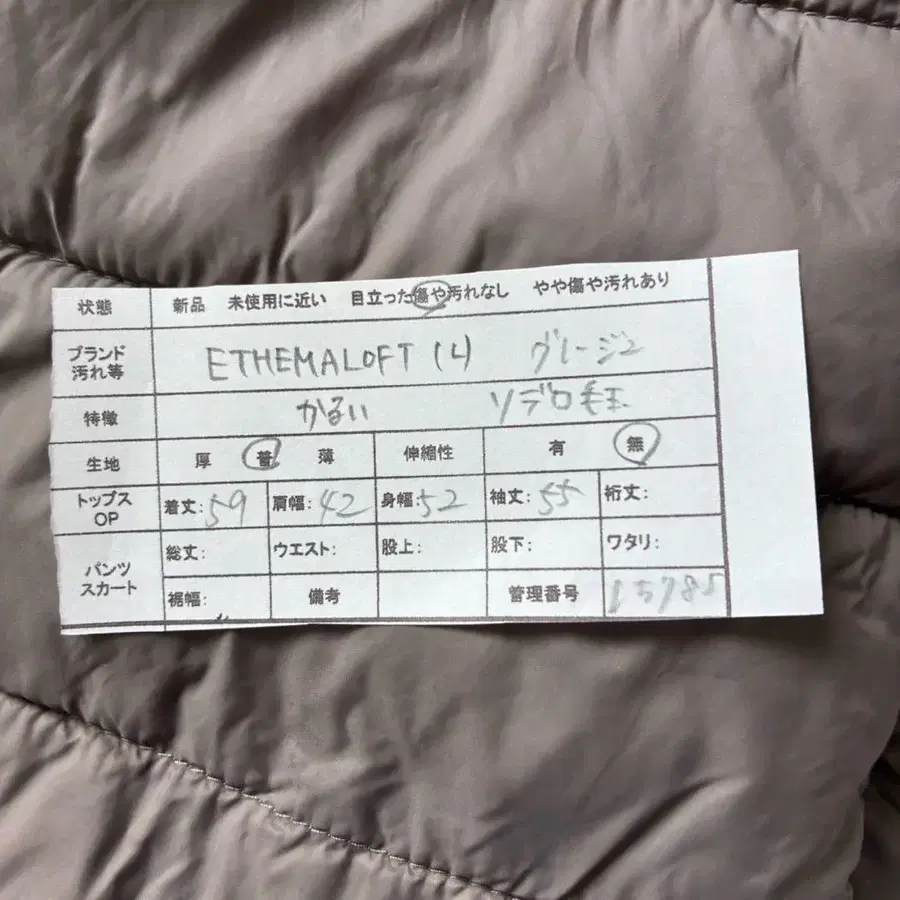 状態 新品 未使用に近い 目立った傷や汚れなし やや傷や汚れあり
ブランド
汚れ等 ETHEMALOFT (L) グレージュ
特徴 かるい ソデロ毛玉
生地 厚 普 薄 伸縮性 有 無
トップス
OP 着丈:59 肩幅:42 身幅:52 袖丈:55 裄丈:
パンツ
スカート 総丈: ウエスト: 股上: 股下: ワタリ:
裾幅: 備考 管理番号 15785